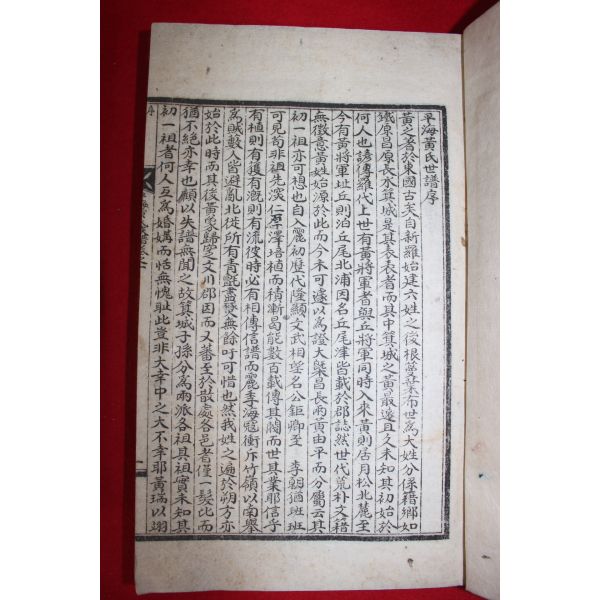 平海黃氏世譜序
黃之著於東國古矣自新羅始建六姓之後根蔓葉布世爲大姓分係籍鄉如
鐵原昌原長水箕城是其表表者而其中箕城之黃最遠且久未知其初始於
何人也諺傳羅代上世有黃將軍者與丘將軍同時入來黃則居月松北麓至
今有黃將軍址丘則泊丘尾北浦因名丘尾津皆載於郡誌然世代荒朴文籍
無徵意黃姓始源於此而今未可遽以爲證大槩昌長兩黃由平而分屬云其
初一祖亦可想也自入麗初歷代隆顯文武相望名公鉅卿至 李朝猶班班
可見苟非祖先深仁厚澤培植而積漸曷能數百載傳其閥而世其業耶信乎
有植則有獲有漑則有流彼時必有相傳信譜而麗季海寇衝斥竹嶺以南擧
爲賊藪人皆避亂北從所有靑氈盡爲無餘吁可惜也然我姓之遍於朔方亦
始於此時而其後黃蒙歸定文川郡因而又蕃至於散處各邑者僅一髮比而
猶不絶亦幸也顧以失譜無聞之故箕城子孫分爲兩派各祖其祖實未知其
初一祖者何人互爲婚媾而恬無愧耻此豈非大幸中之大不幸耶黃瑞以翊